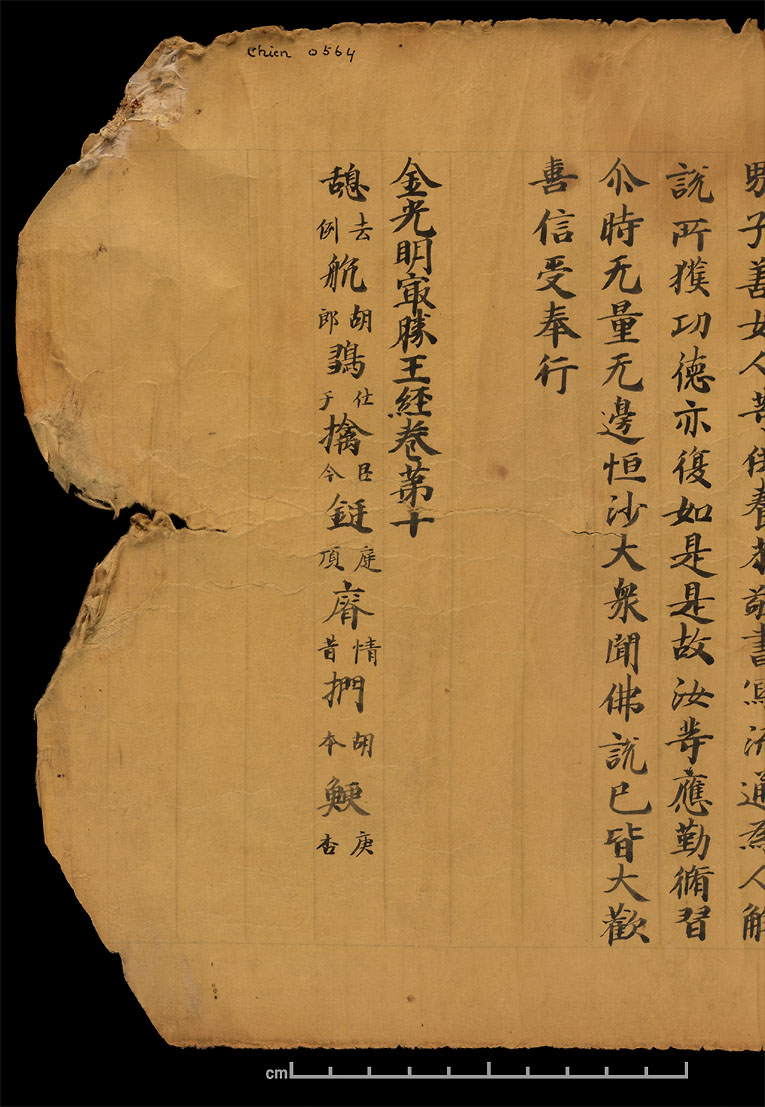 Chien 0564
男子善女人等供養恭敬書寫流通為人解
說所獲功德亦復如是是故汝等應勤脩習
尒時无量无邊恒沙大衆聞佛說已皆大歡
喜信受奉行
金光明冣勝王經卷第十
憩去例航胡郎鶵仕于擒巨今鋌庭頂瘠情昔捫胡本鯁庚杏
cm